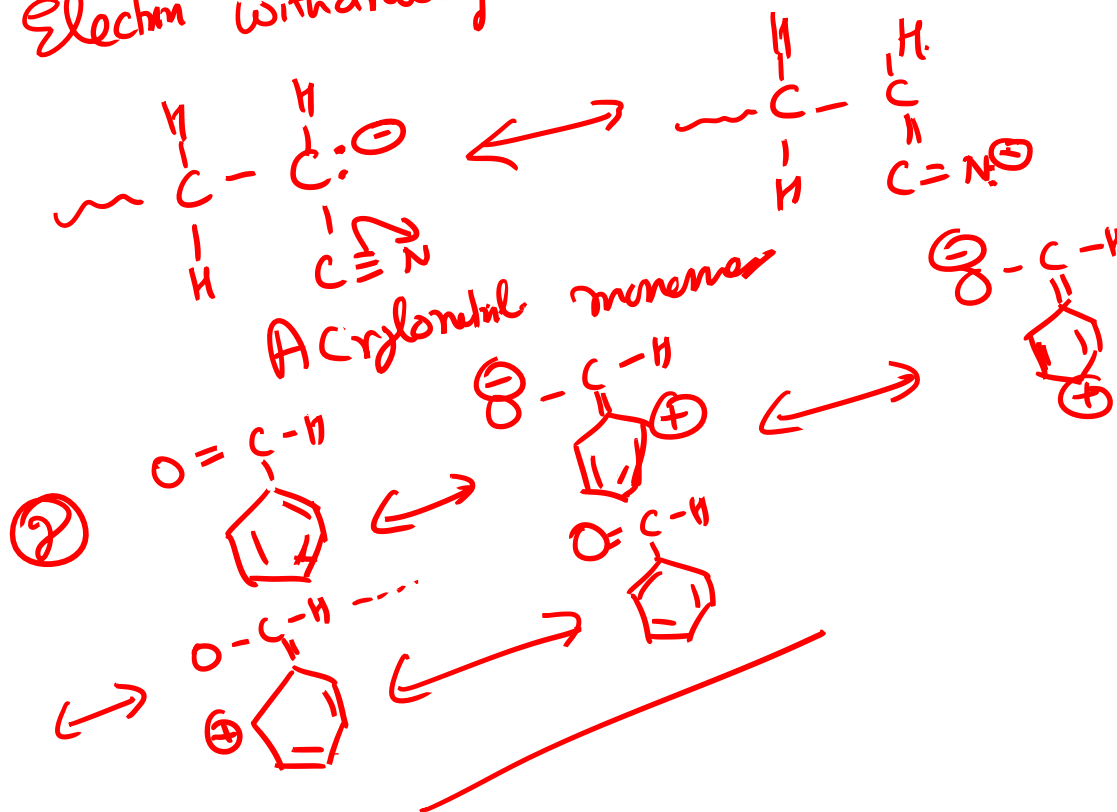 Electron withdrawing
H H
C - C: ⊖
H C≡N
H H.
C - C
H C=N:⊖
Acrylonitrile monomer
⊖ O - C - H
⊕
⊖ O - C - H
⊕
② O = C - H
O = C - H
O - C - H ----
⊕